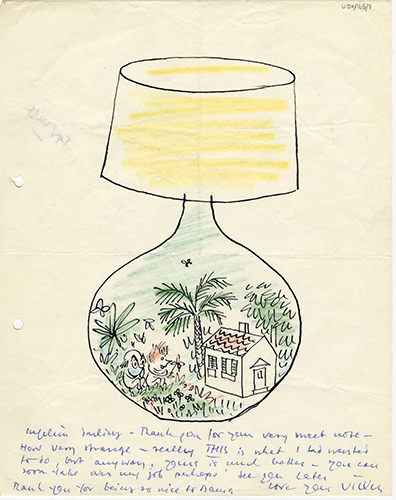 darling - Thank you for your very sweet note -
How very strange - really THIS is what I had wanted
to do, but anyway, yours is much better - you can
soon take over my job perhaps! See you later -
Thank you for being so nice to love you